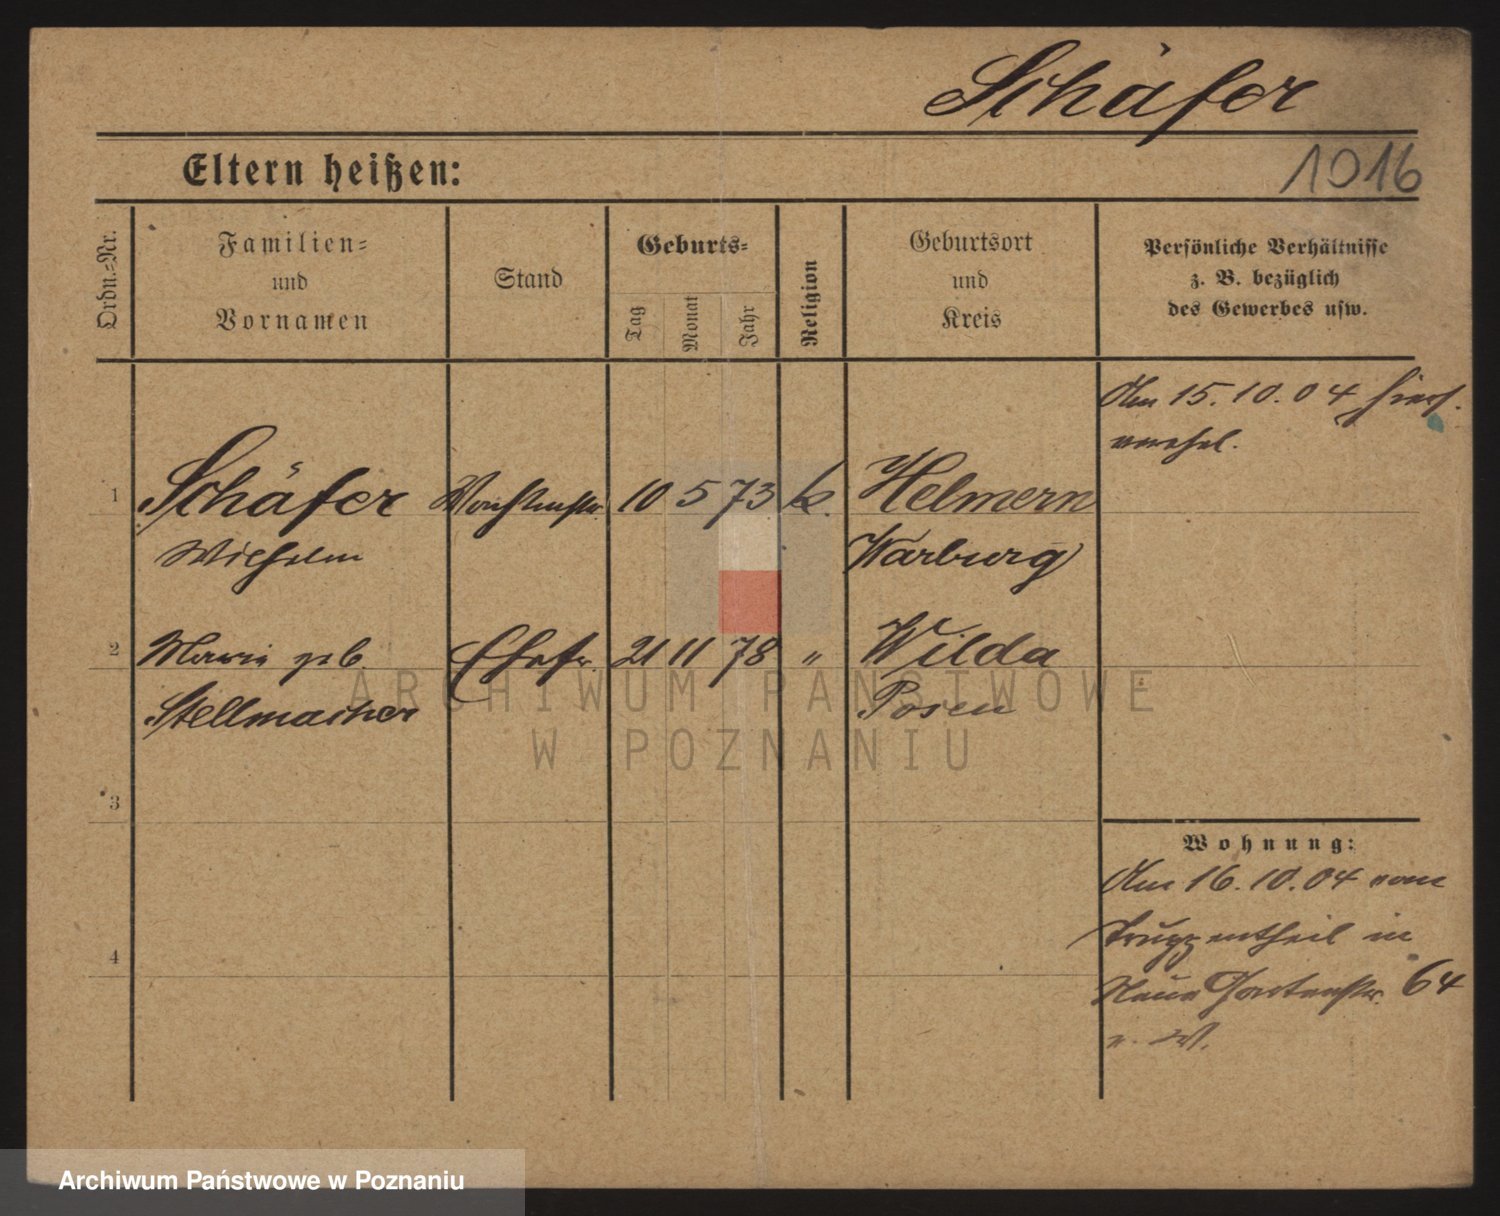 Schäfer
1016
Eltern heißen:
Ordn.-Nr.
Familien-
und
Vornamen
Stand
Geburts-
Tag
Monat
Jahr
Religion
Geburtsort
und
Kreis
Persönliche Verhältnisse
z. B. bezüglich
des Gewerbes usw.
Am 15.10.04 hiers.
verehel.
1 Schäfer 10 5 73 k. Helmern
Wilhelm Warburg
2 Marie geb. Ehefr. 21 11 78 " Wilda
Stellmacher Posen
3
4
Wohnung:
Am 16.10.04 vom
Truppentheil in
Neue Gartenstr. 64
ARCHIWUM PAŃSTWOWE
W POZNANIU
Archiwum Państwowe w Poznaniu